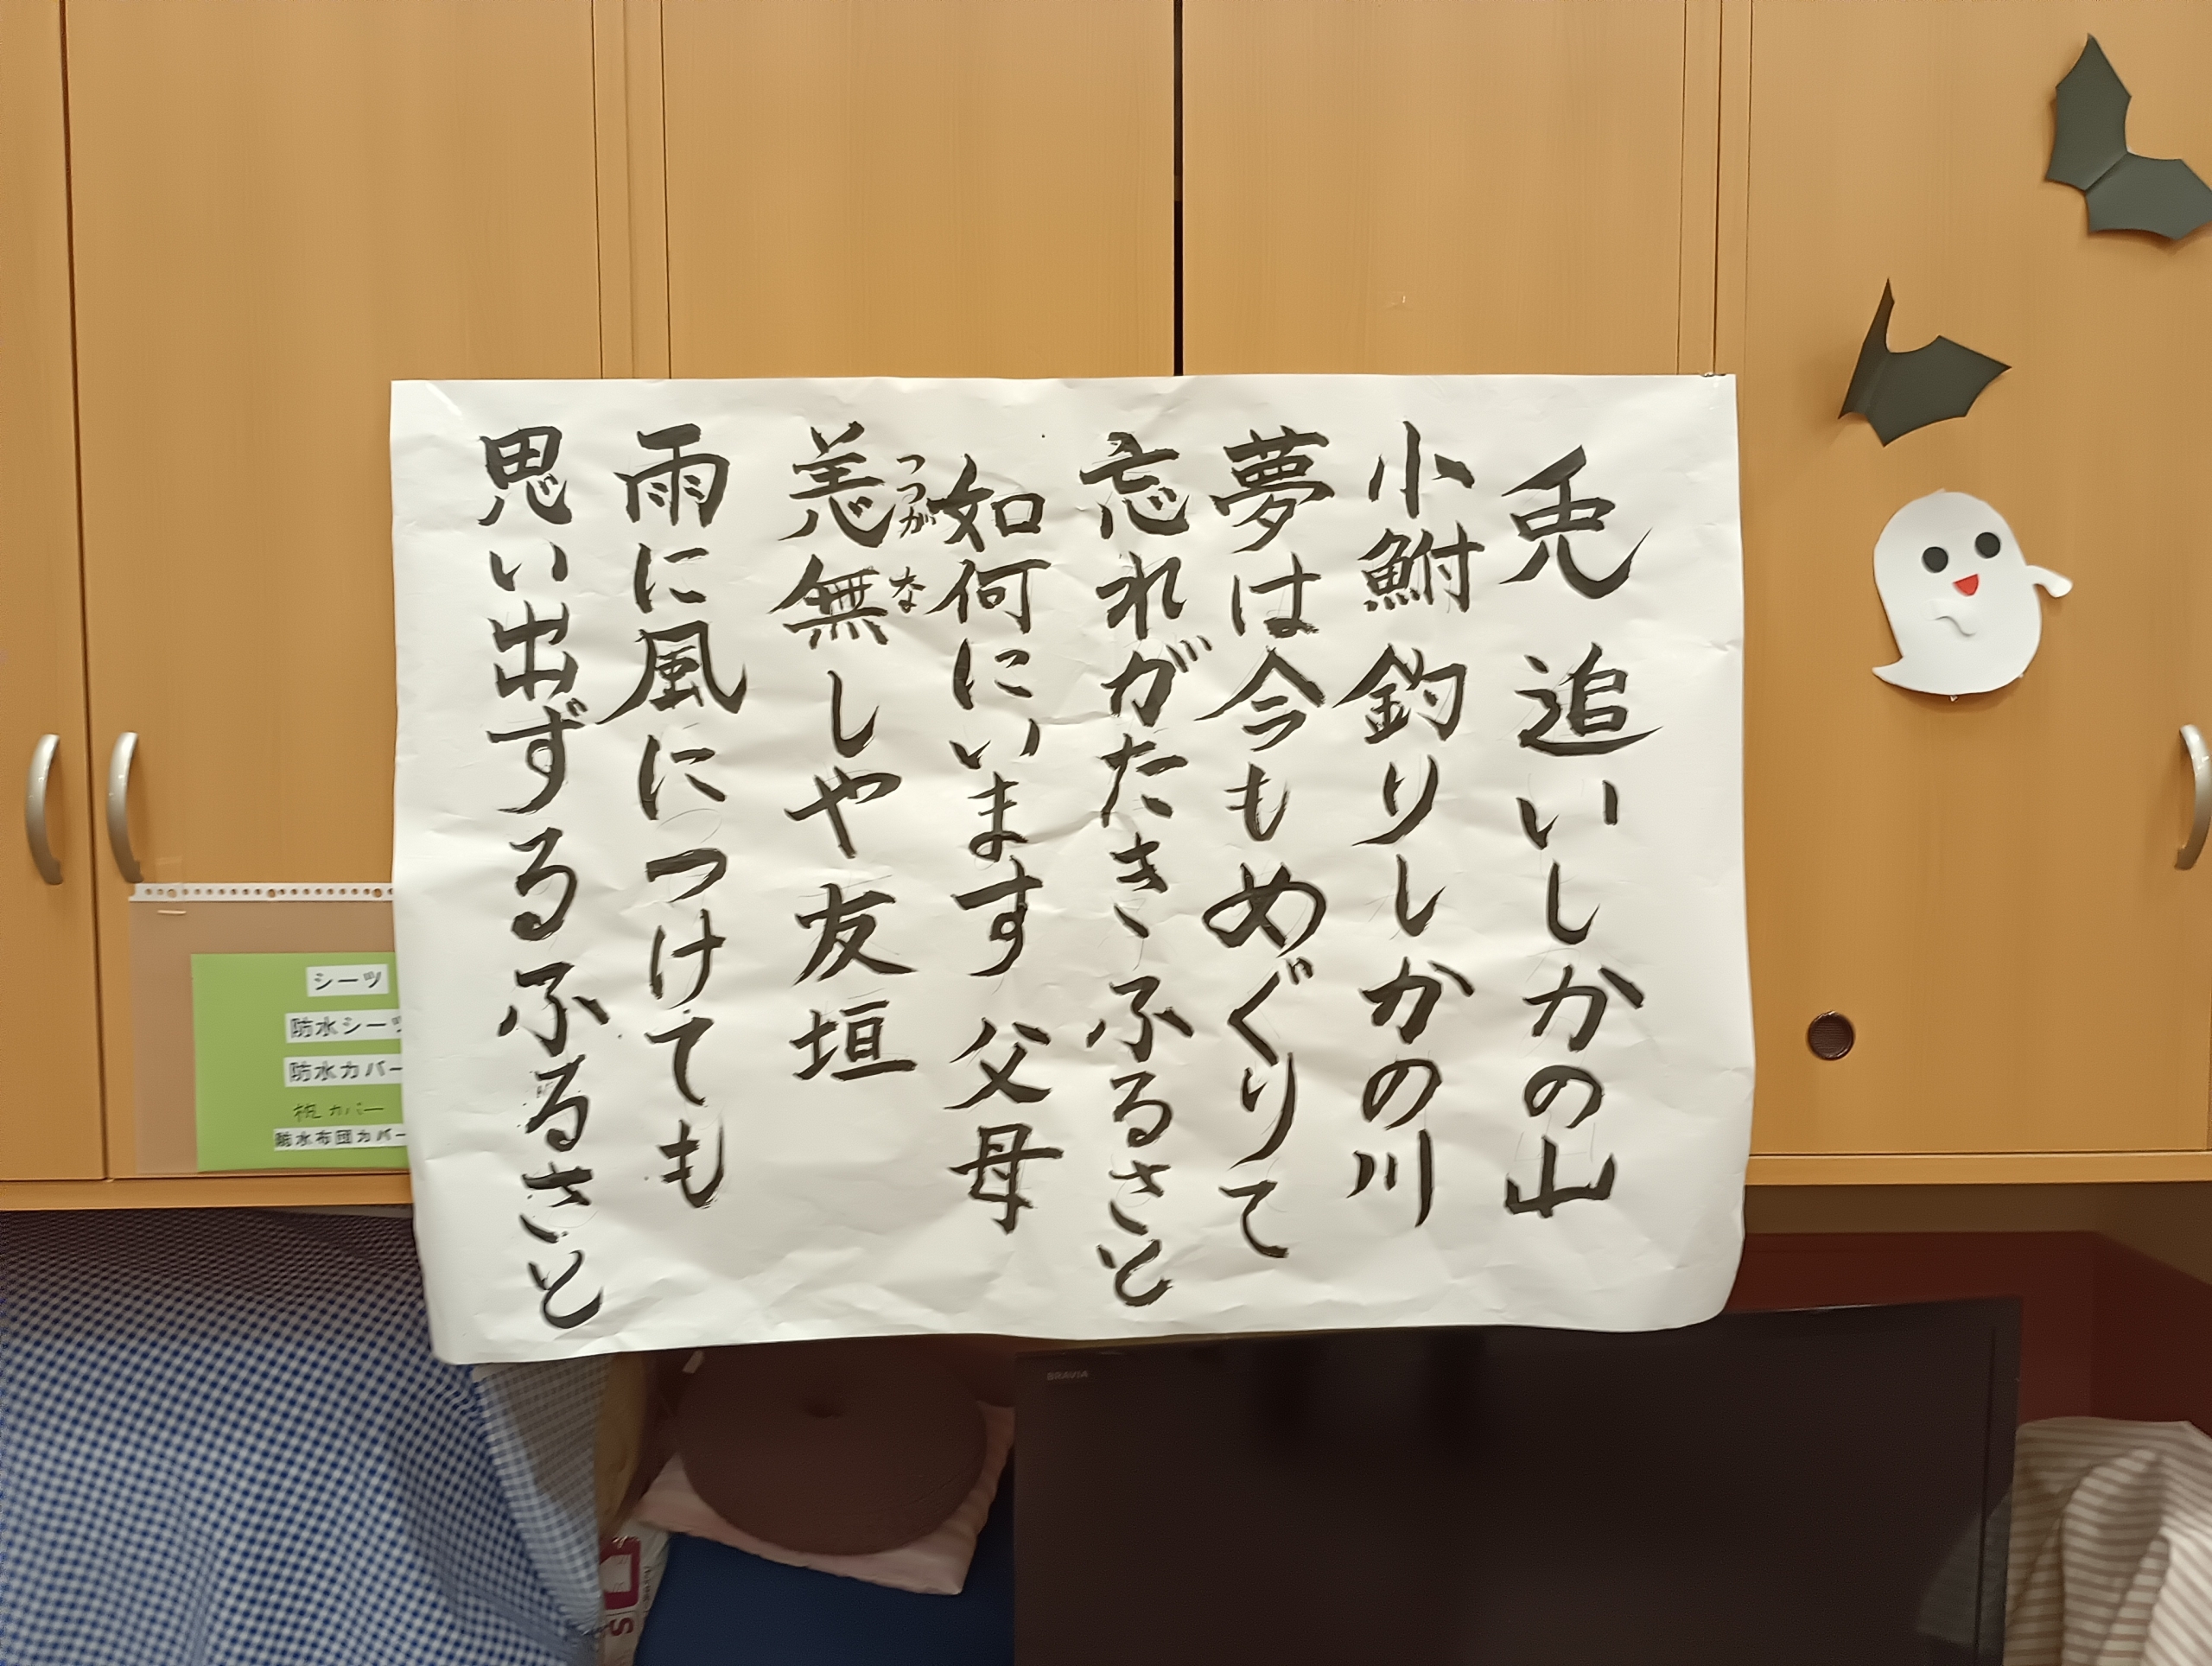 兎追いしかの山
小鮒釣りしかの川
夢は今もめぐりて
忘れがたきふるさと
如何にいます父母
つつが な
恙無しや友垣
雨に風につけても
思い出ずるふるさと
シーツ
防水シーツ
防水カバー
枕カバー
防水布団カバー
BRAVIA